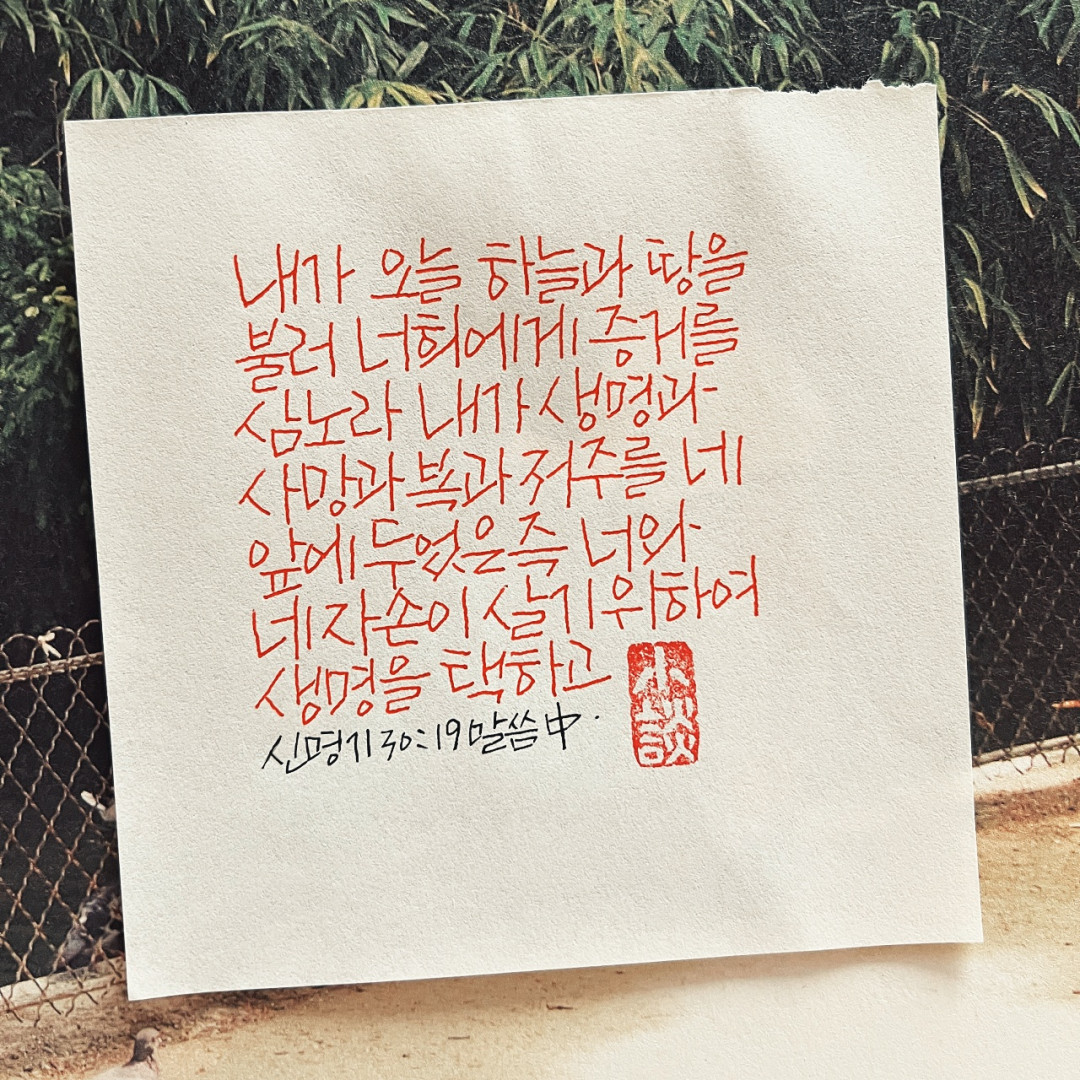 내가 오늘 하늘과 땅을
불러 너희에게 증거를
삼노라 내가 생명과
사망과 복과 저주를 네
앞에 두었은즉 너와
네 자손이 살기 위하여
생명을 택하고
신명기 30:19 말씀 中.
小談